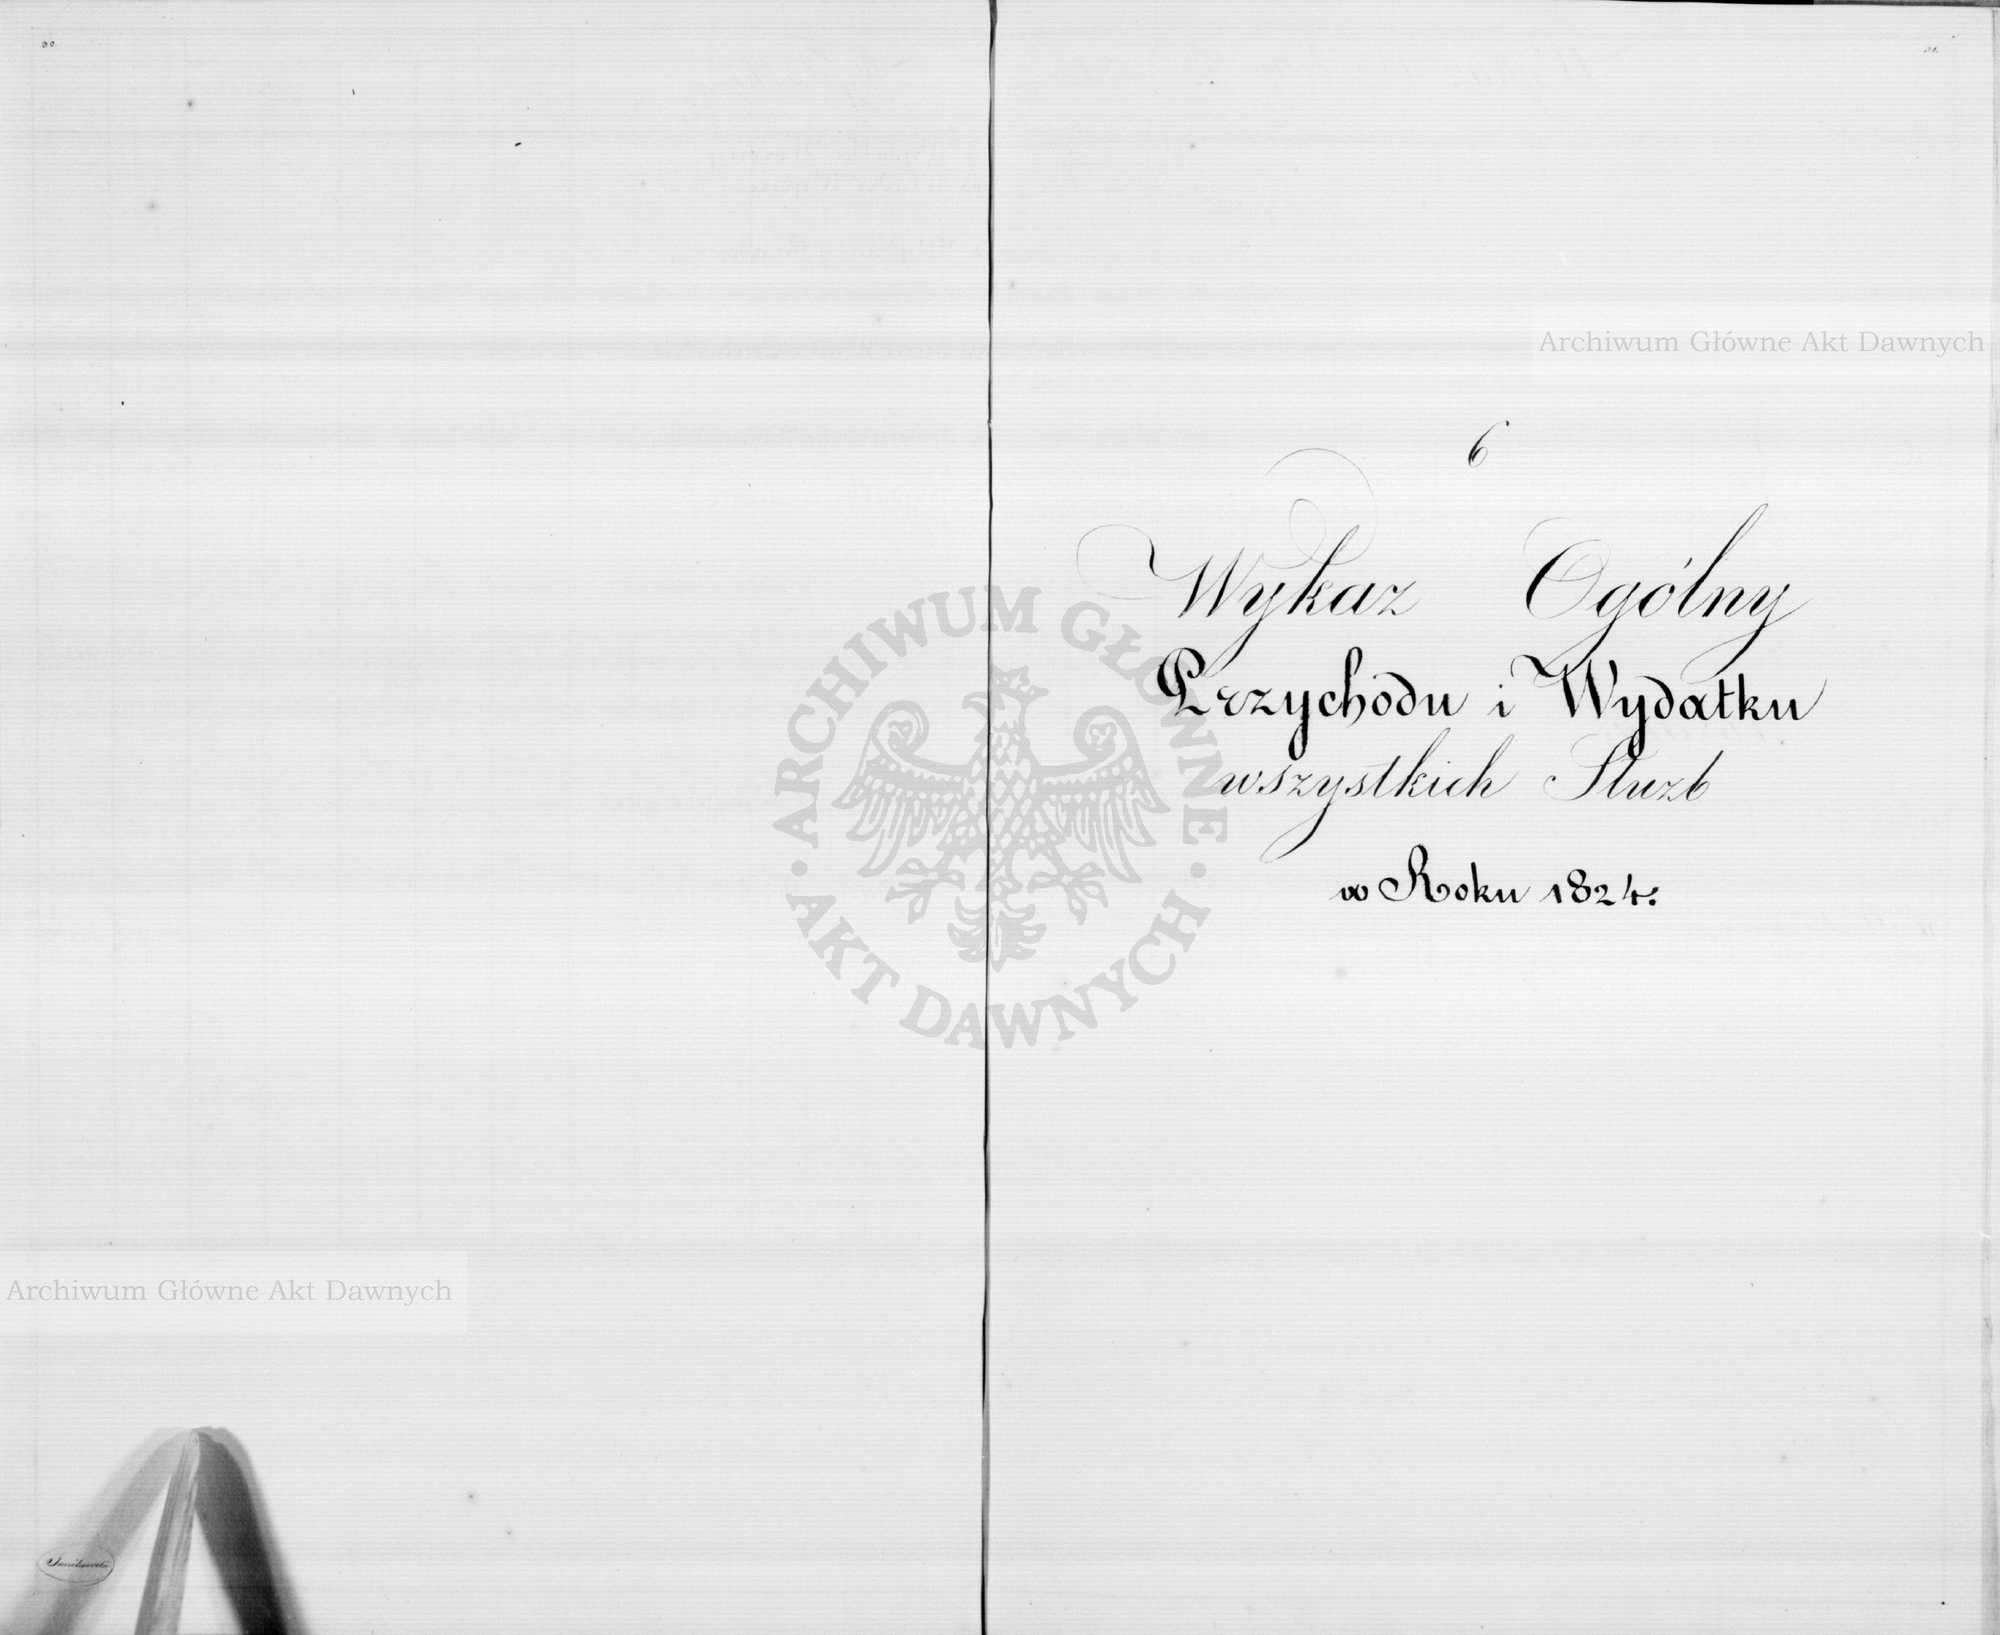 30
31.
Archiwum Główne Akt Dawnych
6
Wykaz Ogólny
Przychodu i Wydatku
wszystkich Służb
w Roku 1824.
ARCHIWUM GŁÓWNE
AKT DAWNYCH
Archiwum Główne Akt Dawnych